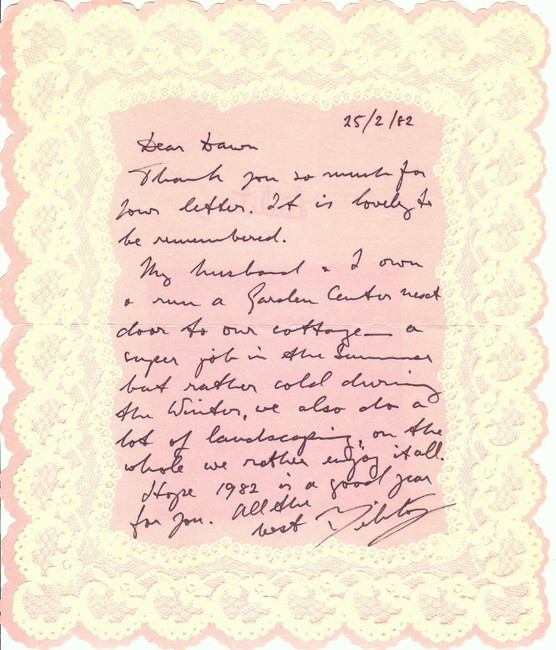 25/2/82
Dear Dawn
Thank you so much for
your letter. It is lovely to
be remembered.
My husband & I own
& run a Garden Center next
door to our cottage — a
super job in the Summer
but rather cold during
the Winter, we also do a
lot of landscaping, on the
whole we rather enjoy it all.
Hope 1982 is a good year
for you. All the
best